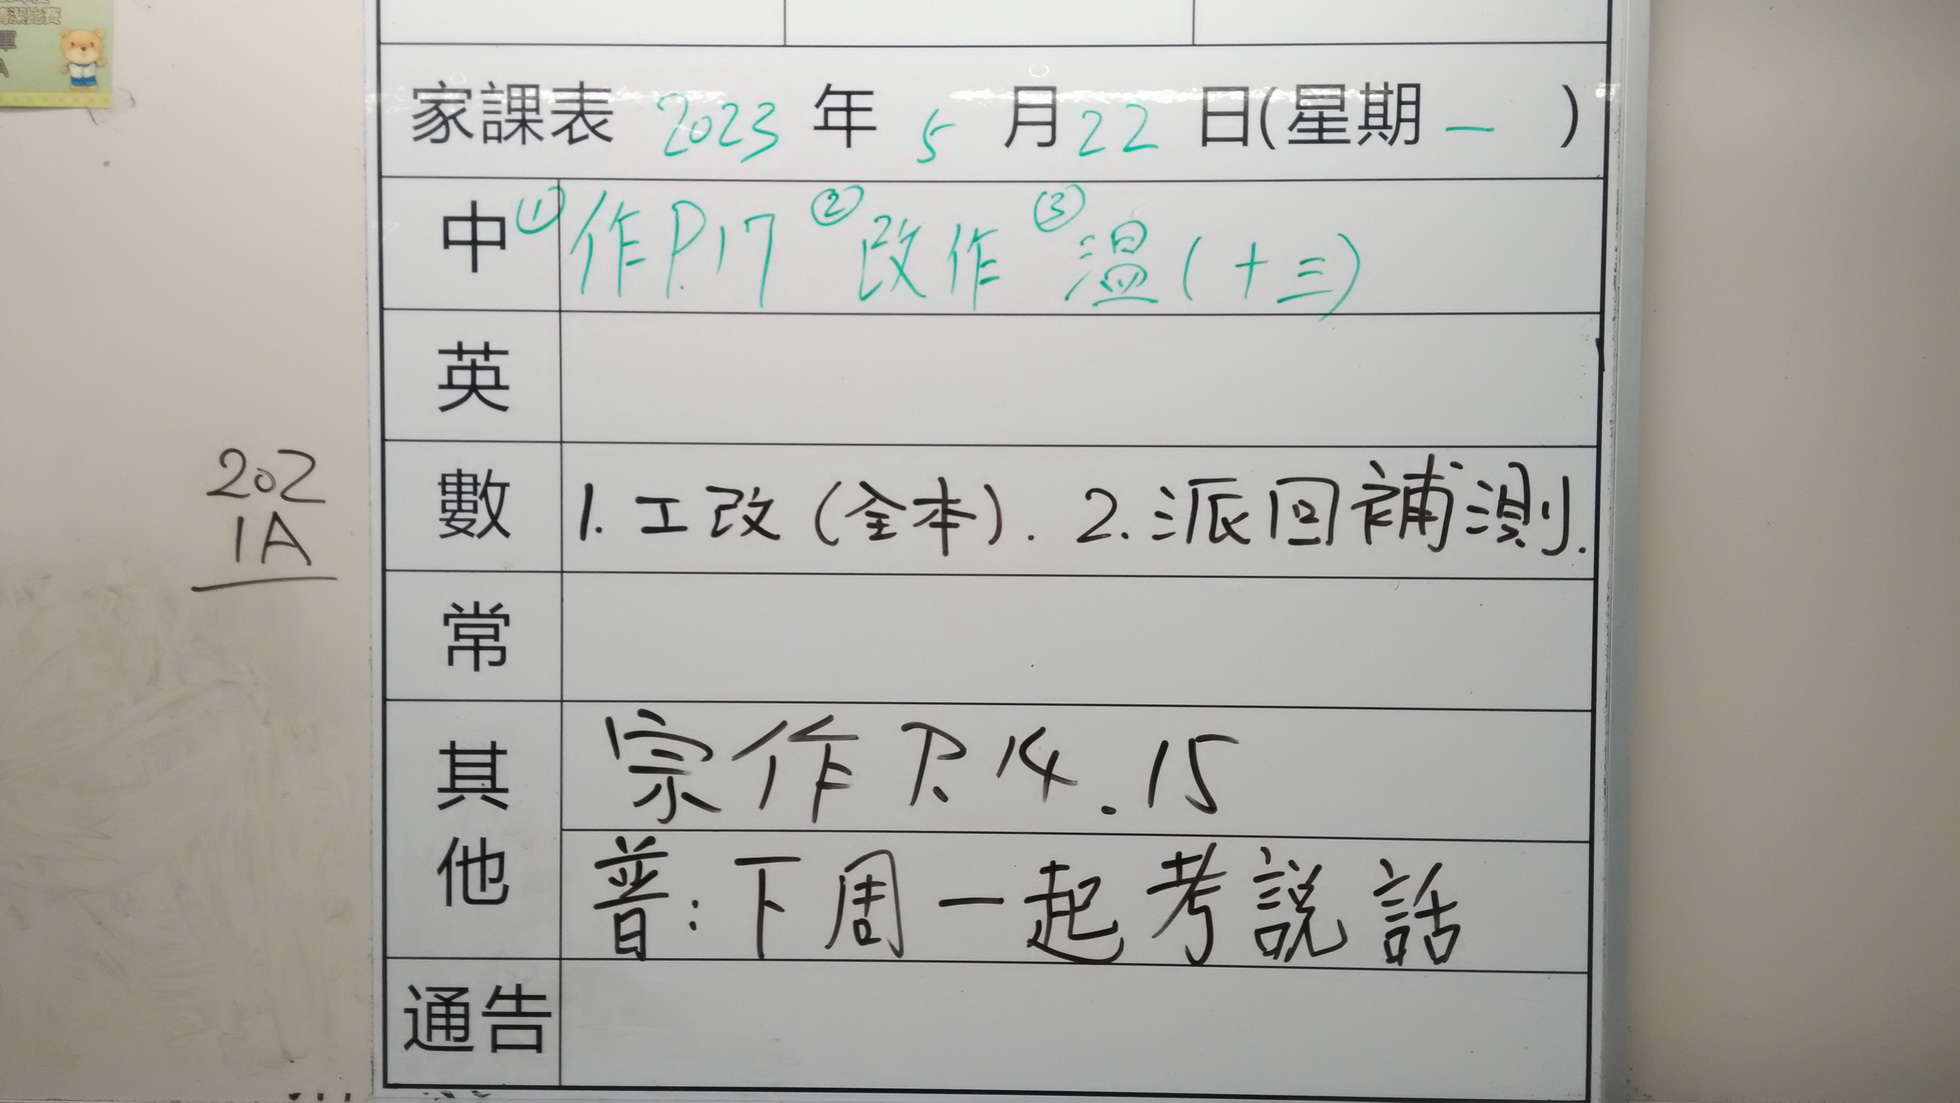 清潔比賽
家課表 2023 年 5 月 22 日(星期 一 )
中 ① 作P.17 ② 改作 ③ 溫(十三)
英
202
1A
數 1. 工改(全本). 2. 派回補測.
常
其他
宗作 P.14.15
普:下周一起考説話
通告